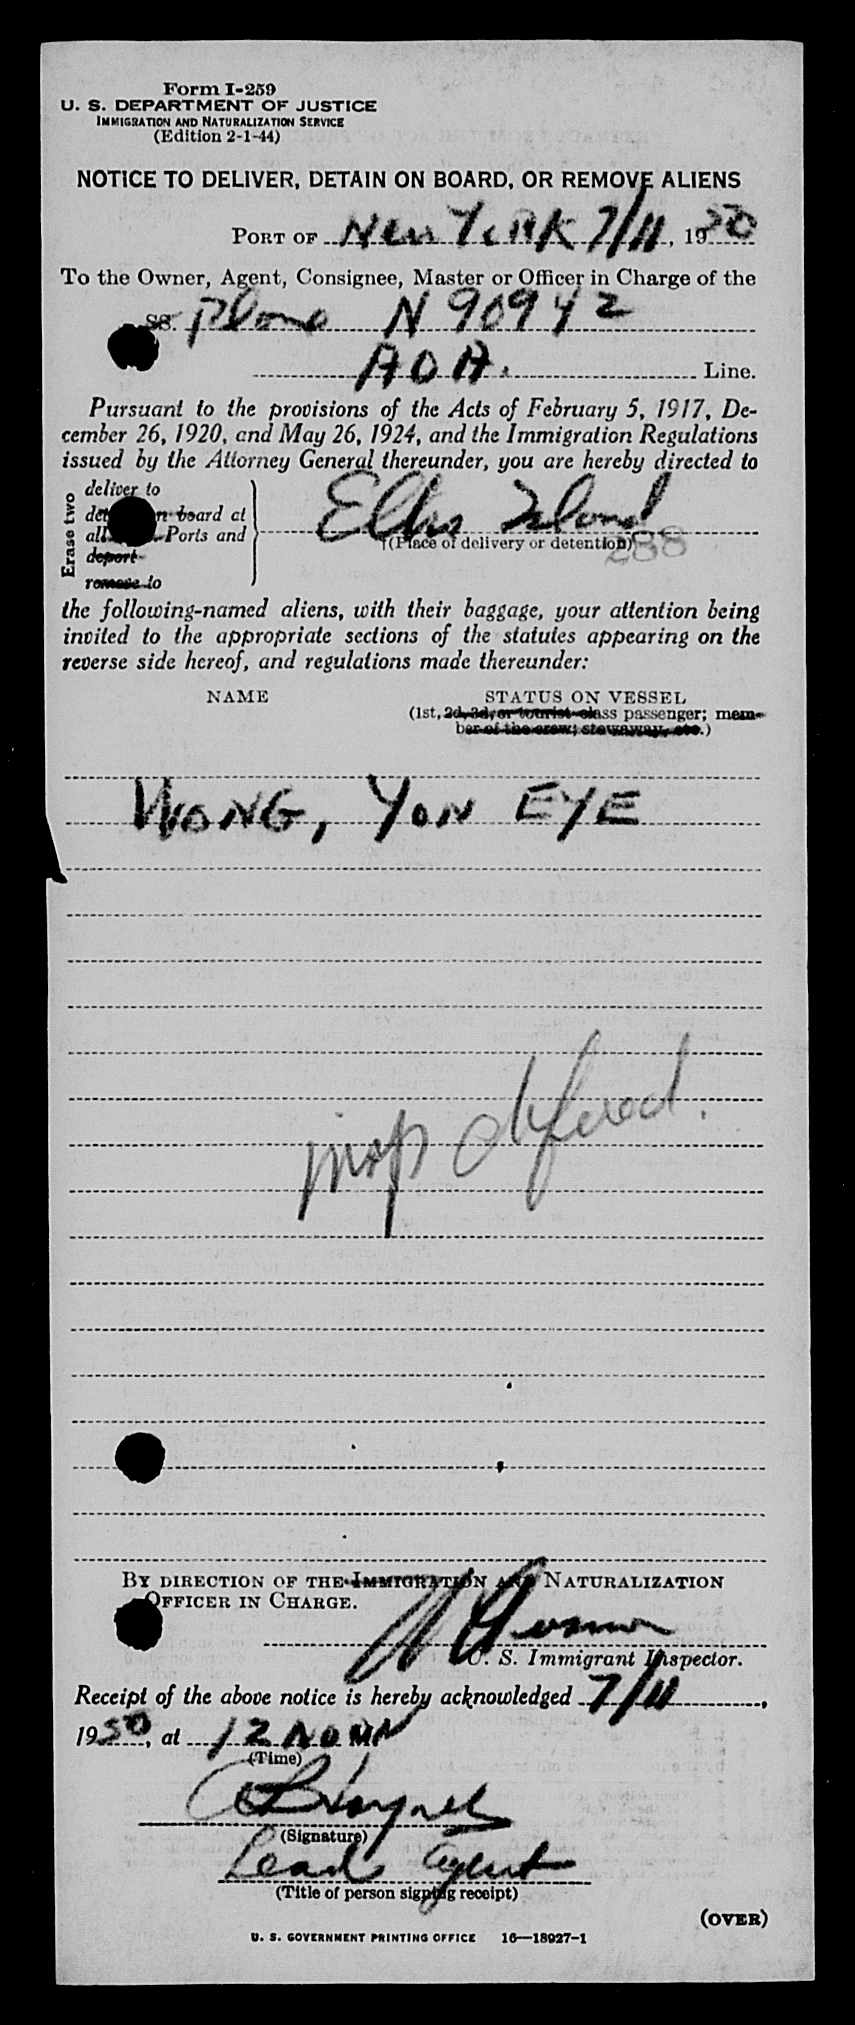 Form I-259
U. S. DEPARTMENT OF JUSTICE
IMMIGRATION AND NATURALIZATION SERVICE
(Edition 2-1-44)
NOTICE TO DELIVER, DETAIN ON BOARD, OR REMOVE ALIENS
PORT OF New York 7/11, 1950
To the Owner, Agent, Consignee, Master or Officer in Charge of the
SS. Plane N 90942
AOA. Line.
Pursuant to the provisions of the Acts of February 5, 1917, De-
cember 26, 1920, and May 26, 1924, and the Immigration Regulations
issued by the Attorney General thereunder, you are hereby directed to
Erase two
deliver to
on board at
all Ports and
deport
remove to
Ellis Island
(Place of delivery or detention)
288
the following-named aliens, with their baggage, your attention being
invited to the appropriate sections of the statutes appearing on the
reverse side hereof, and regulations made thereunder:
NAME STATUS ON VESSEL
(1st, 2d, 3d, or tourist class passenger; mem-
ber of the crew; stowaway, etc.)
WONG, YON EYE
insp defered.
BY DIRECTION OF THE IMMIGRATION AND NATURALIZATION
OFFICER IN CHARGE.
U. S. Immigrant Inspector.
Receipt of the above notice is hereby acknowledged 7/11,
1950, at 12 NOON
(Time)
(Signature)
Lead Agent
(Title of person signing receipt)
(OVER)
U. S. GOVERNMENT PRINTING OFFICE 16—18927-1